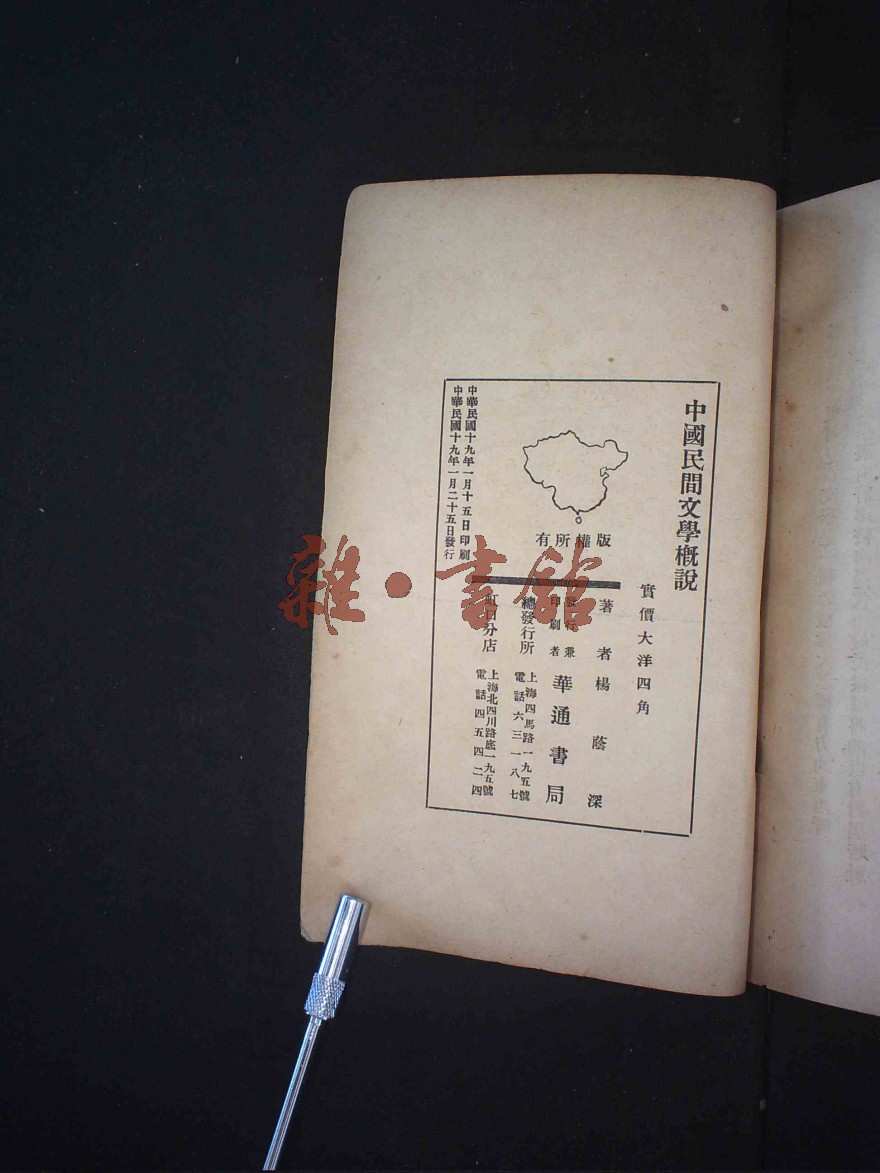 中國民間文學概說
實價大洋四角
著者楊蔭深
發行兼
印刷者
華通書局
總發行所
上海四馬路一九五號
電話六三一八七
虹口分店
上海北四川路底一九五號
電話四五四二四
版權所有
中華民國十九年一月十五日印刷
中華民國十九年一月二十五日發行
雜·書館